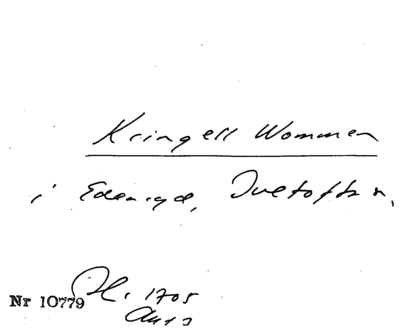 Kringell Wommen
i Edenryd, Ivetofta n.
Nr 10779
1705